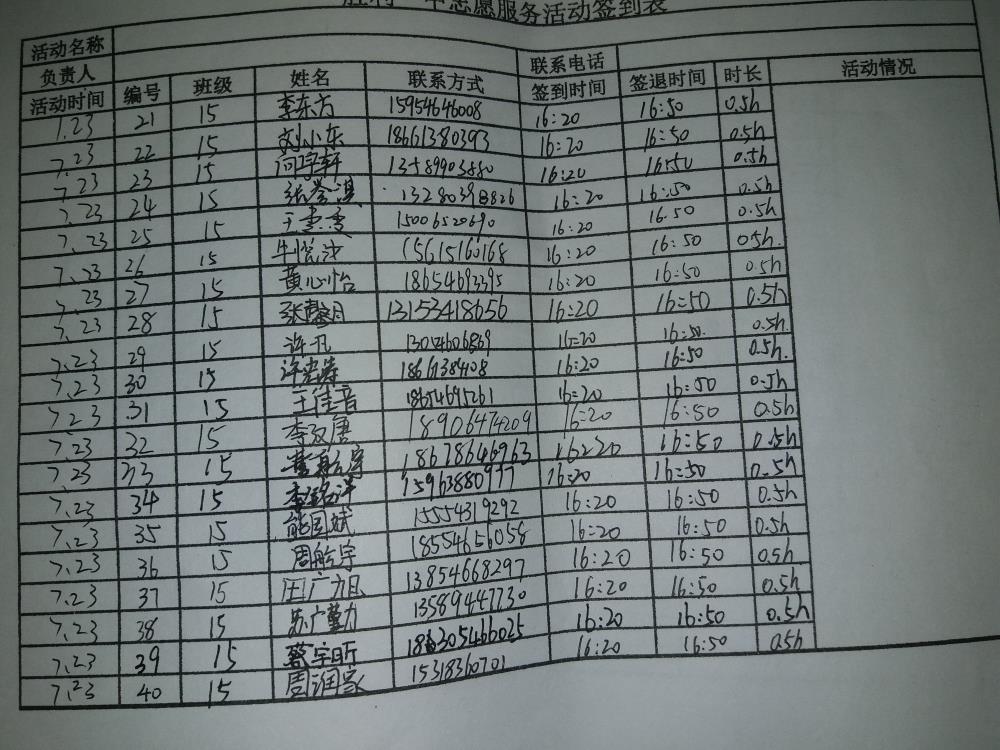 胜利一中志愿服务活动签到表
活动名称
负责人 联系电话
活动时间 编号 班级 姓名 联系方式 签到时间 签退时间 时长 活动情况
7.23 21 15 李东方 15954646008 16:20 16:50 0.5h
7.23 22 15 刘小东 18661380393 16:20 16:50 0.5h
7.23 23 15 13589903880 16:20 16:50 0.5h
7.23 24 15 16:20 16:50 0.5h
7.23 25 15 15006520690 16:20 16:50 0.5h
7.23 26 15 15615160168 16:20 16:50 0.5h
7.23 27 15 黄心怡 18654693395 16:20 16:50 0.5h
7.23 28 15 张馨月 13153418656 16:20 16:50 0.5h
7.23 29 15 许凡 16:20 16:50 0.5h
7.23 30 15 16:20 16:50 0.5h
7.23 31 15 王佳音 18654695261 16:20 16:50 0.5h
7.23 32 15 李双唐 18906474209 16:20 16:50 0.5h
7.23 33 15 18678646963 16:20 16:50 0.5h
7.23 34 15 15963880977 16:20 16:50 0.5h
7.23 35 15 熊国斌 15554319292 16:20 16:50 0.5h
7.23 36 15 周航宇 18554656058 16:20 16:50 0.5h
7.23 37 15 13854668297 16:20 16:50 0.5h
7.23 38 15 苏广勤 13589447730 16:20 16:50 0.5h
7.23 39 15 蔡宇昕 186305466025 16:20 16:50 0.5h
7.23 40 15 周润家 15318360701